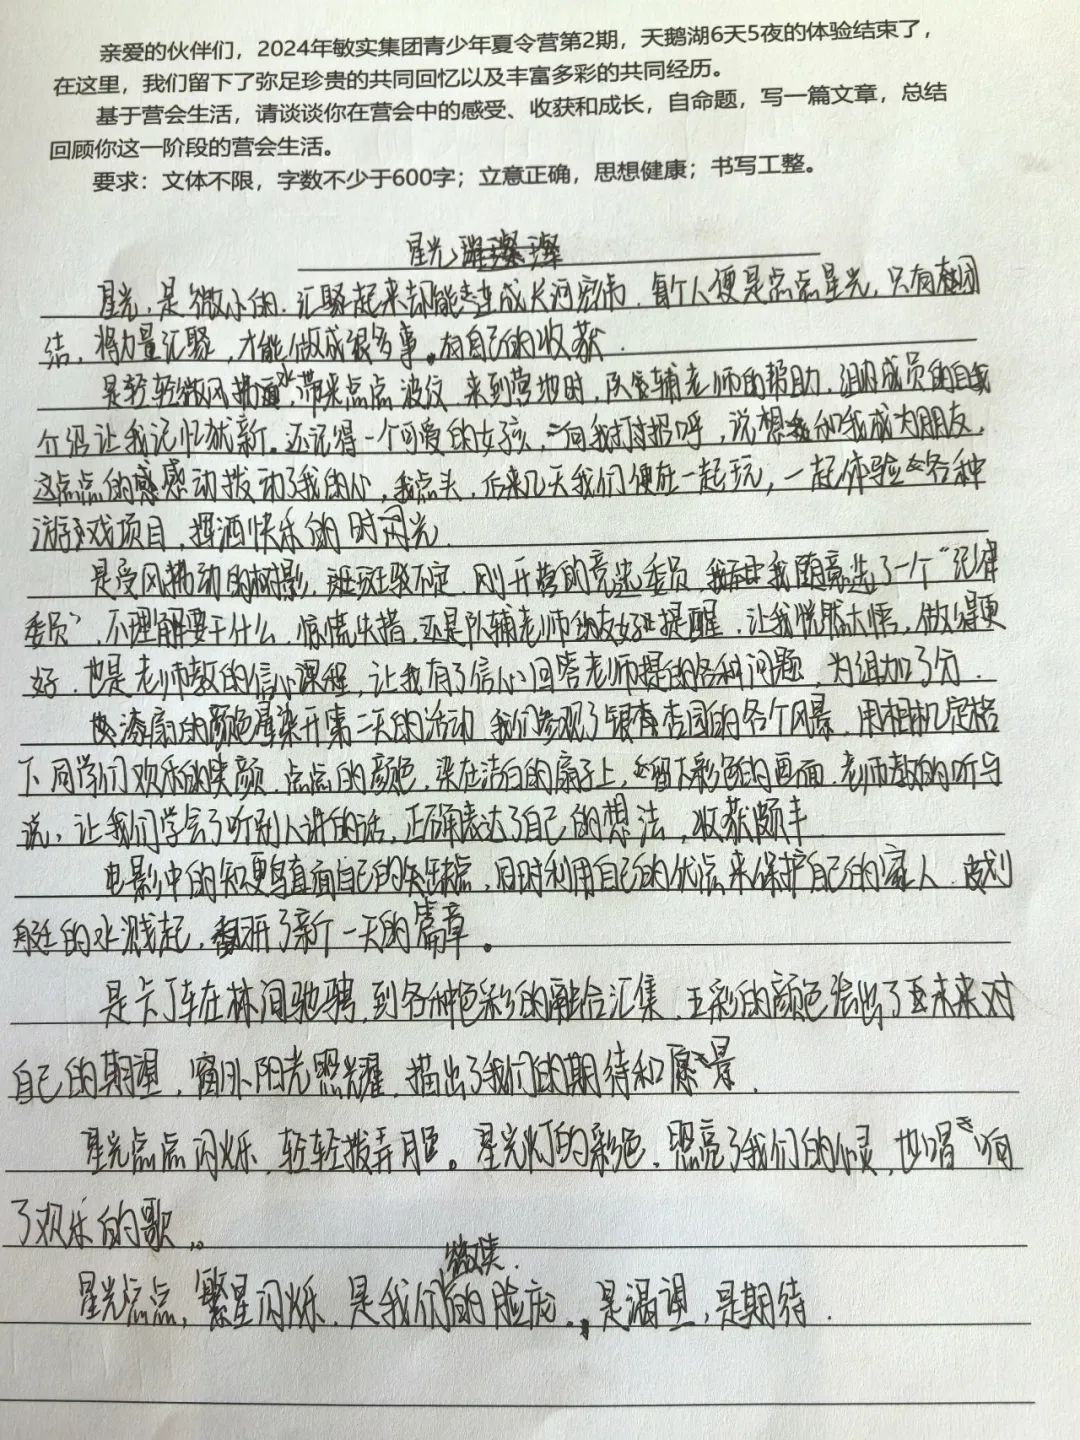 亲爱的伙伴们，2024年敏实集团青少年夏令营第2期，天鹅湖6天5夜的体验结束了，
在这里，我们留下了弥足珍贵的共同回忆以及丰富多彩的共同经历。
基于营会生活，请谈谈你在营会中的感受、收获和成长，自命题，写一篇文章，总结
回顾你这一阶段的营会生活。
要求：文体不限，字数不少于600字；立意正确，思想健康；书写工整。
星光璀璨
星光,是微小的.汇聚起来却能连成长河.每个人便是点点星光,只有团
结,将力量汇聚,才能做成很多事。有自己的收获.
是轻轻微风拂过水,带来点点波纹.来到营地时,队辅老师的帮助,组内成员的自我
介绍让我记忆犹新。还记得一个可爱的女孩,向我打招呼,说想和我成为朋友,
这点点的感动拨动了我的心,我点头,后来几天我们便在一起玩,一起体验各种
游戏项目,挥洒快乐的时光.
是受风拂动的树影,斑斑驳不定.刚开营的竞选委员,我竞选了一个“纪律
委员”,不理解要干什么,惊慌失措,还是队辅老师的友好提醒,让我恍然大悟,做得更
好.也是老师教的信心课程,让我有了信心回答老师提的各种问题,为组加了分.
漆扇的颜色晕染开第二天的活动.我们参观了银杏园的各个风景,用相机定格
下同学们欢乐的笑颜.点点的颜色,染在洁白的扇子上,留下彩色的画面.老师教的听与
说,让我们学会了听别人讲的话,正确表达了自己的想法,收获颇丰.
电影中的知更鸟直面自己的缺点,同时利用自己的优点来保护自己的家人.皮划
艇的水溅起,翻开了新一天的篇章。
是卡丁车在林间驰骋,到各种色彩的融合汇集,五彩的颜色绘出了未来对
自己的期望,窗外阳光照耀,描出了我们的期待和愿景.
星光点点闪烁,轻轻拨弄月色。星光灯的彩色,照亮了我们的心灵,也唱响
了欢乐的歌。
星光点点,繁星闪烁,是我们微笑的脸庞,是渴望,是期待.